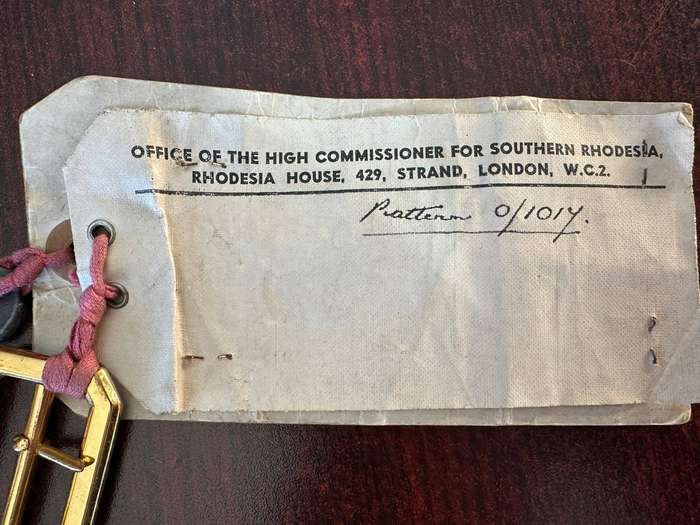 OFFICE OF THE HIGH COMMISSIONER FOR SOUTHERN RHODESIA,
RHODESIA HOUSE, 429, STRAND, LONDON, W.C.2.
Pattern 0/1017.